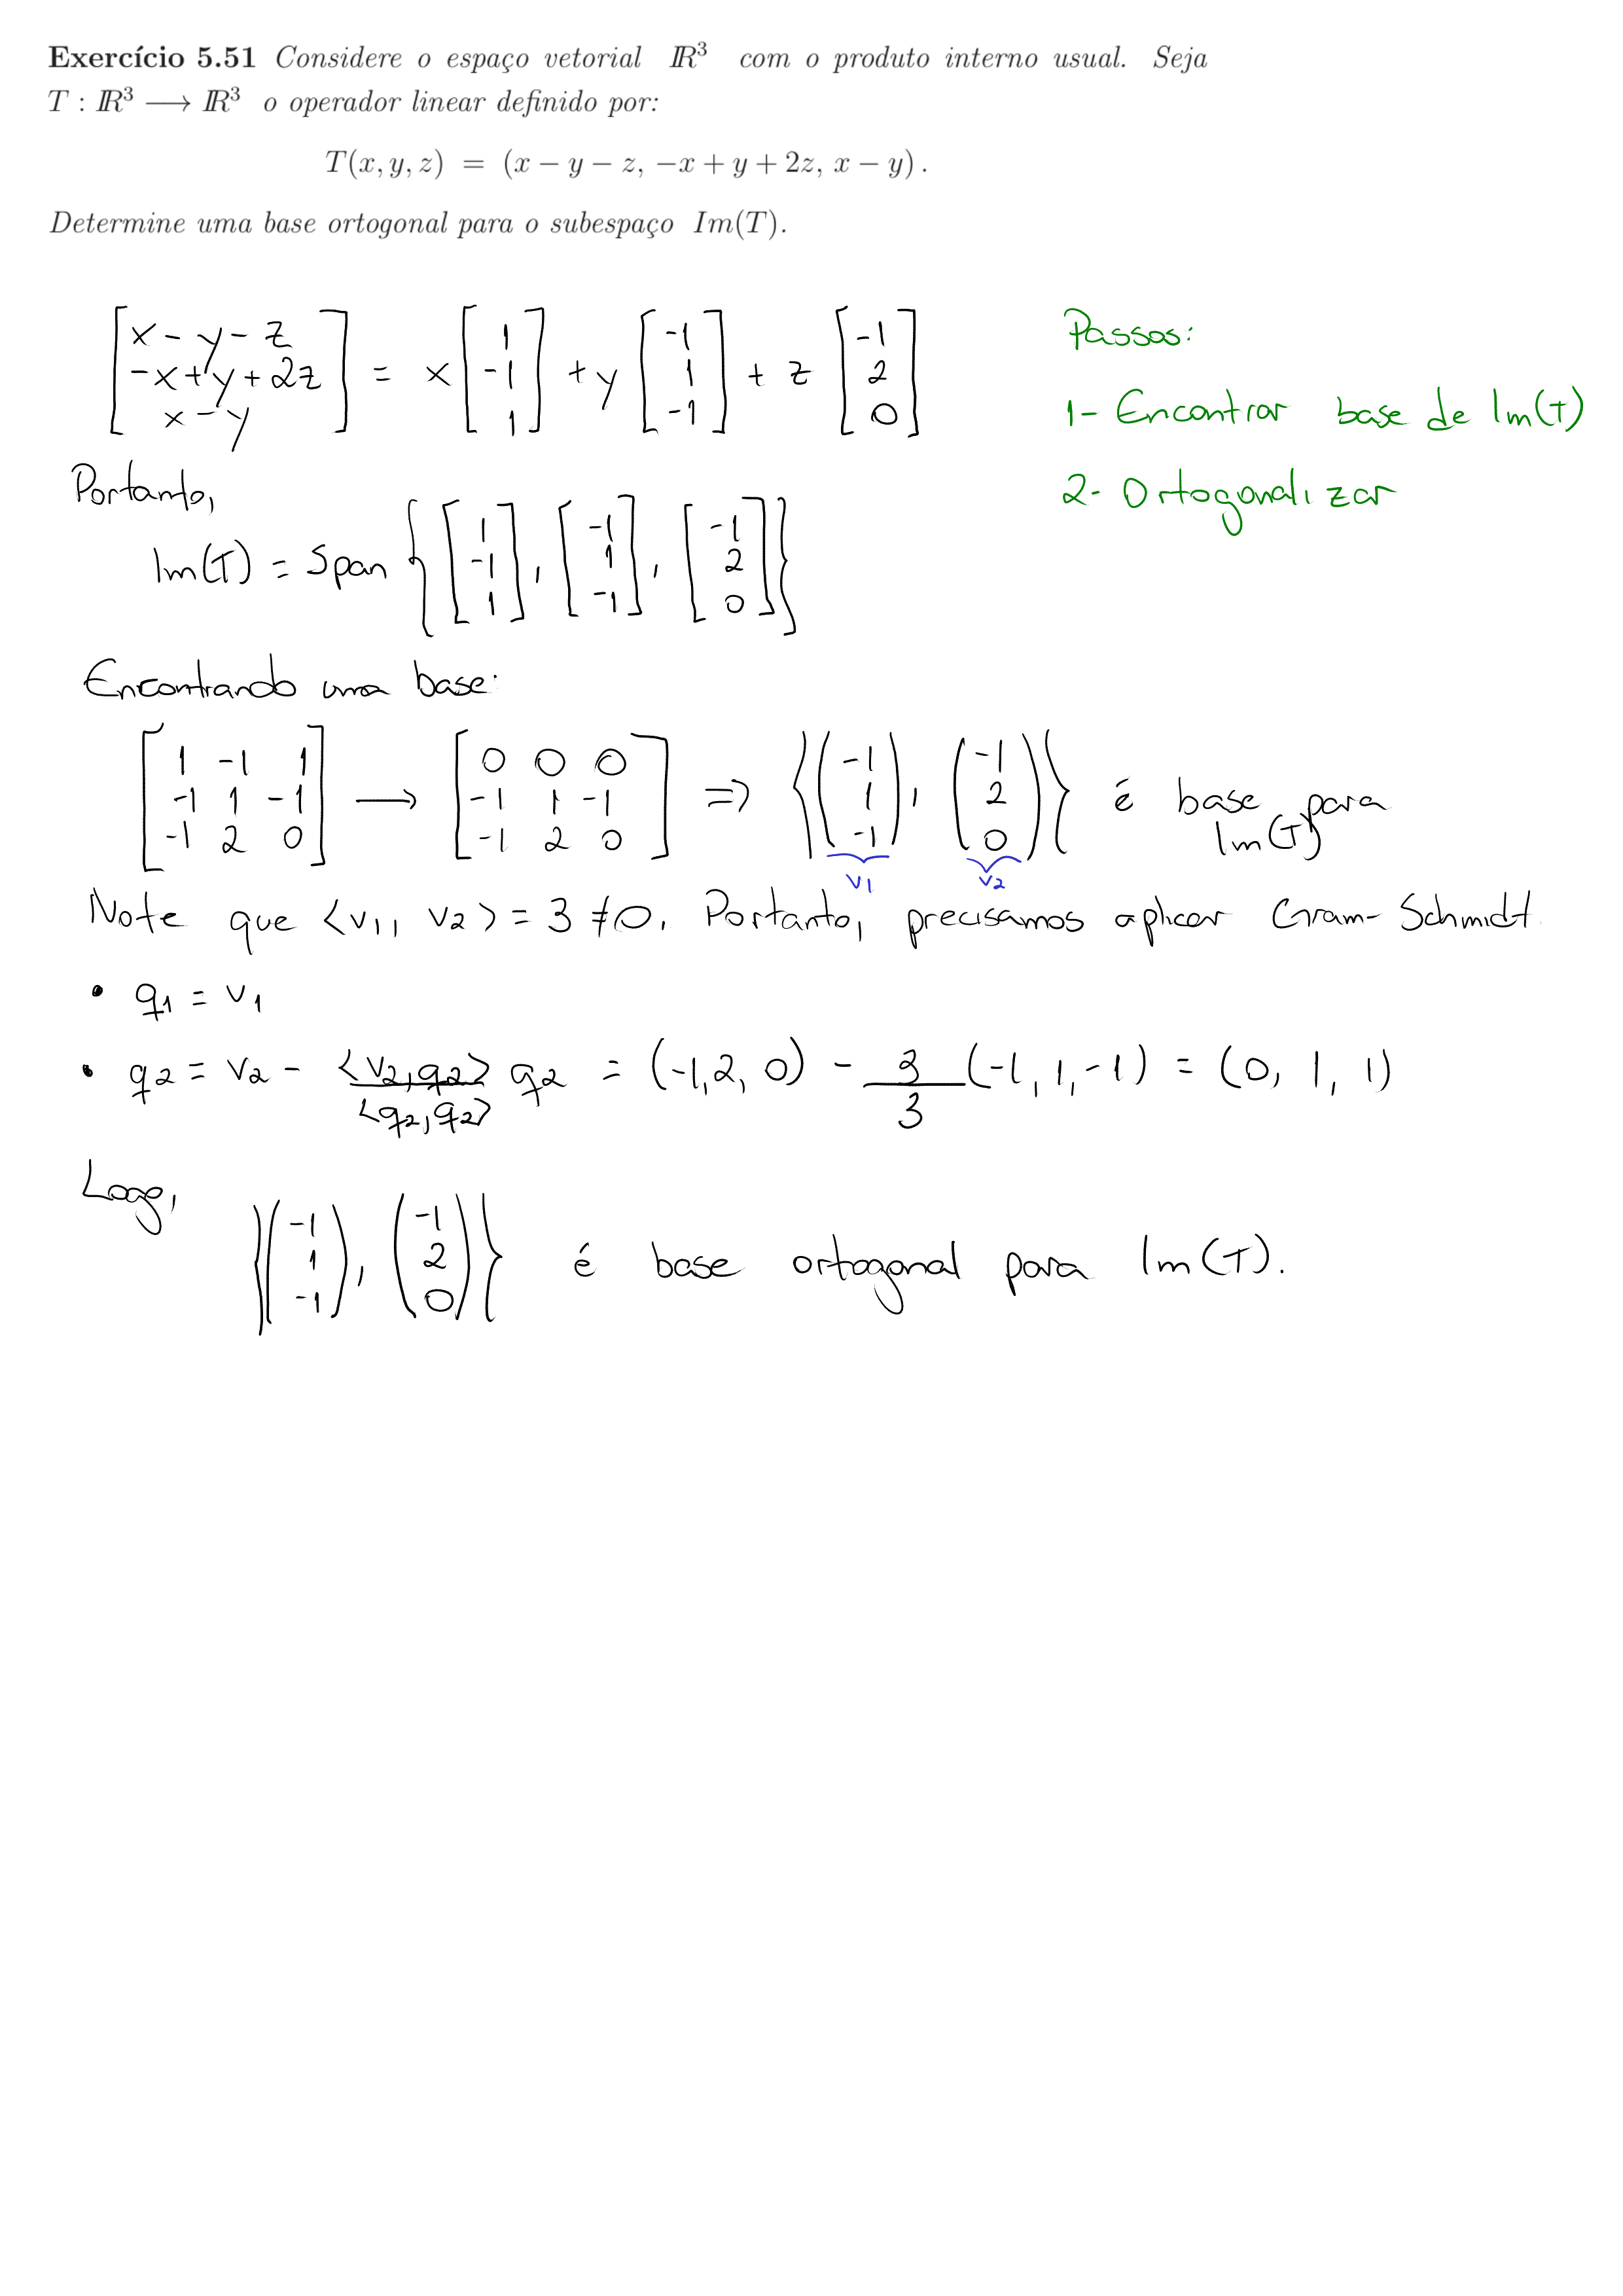 Exercício 5.51 Considere o espaço vetorial ℝ³ com o produto interno usual. Seja
T : ℝ³ ⟶ ℝ³ o operador linear definido por:
T(x, y, z) = (x − y − z, −x + y + 2z, x − y) .
Determine uma base ortogonal para o subespaço Im(T).
[x - y - z; -x + y + 2z; x - y] = x [1; -1; 1] + y [-1; 1; -1] + z [-1; 2; 0]
Passos:
1- Encontrar base de Im(T)
2- Ortogonalizar
Portanto,
Im(T) = Span { [1; -1; 1], [-1; 1; -1], [-1; 2; 0] }
Encontrando uma base:
[1 -1 1; -1 1 -1; -1 2 0] ⟶ [0 0 0; -1 1 -1; -1 2 0] => { (-1; 1; -1), (-1; 2; 0) } é base para Im(T)
v1 v2
Note que <v1, v2> = 3 ≠ 0. Portanto, precisamos aplicar Gram-Schmidt
• q1 = v1
• q2 = v2 - <v2, q2>/<q2, q2> q2 = (-1, 2, 0) - 3/3 (-1, 1, -1) = (0, 1, 1)
Logo,
{ (-1; 1; -1), (-1; 2; 0) } é base ortogonal para Im(T).